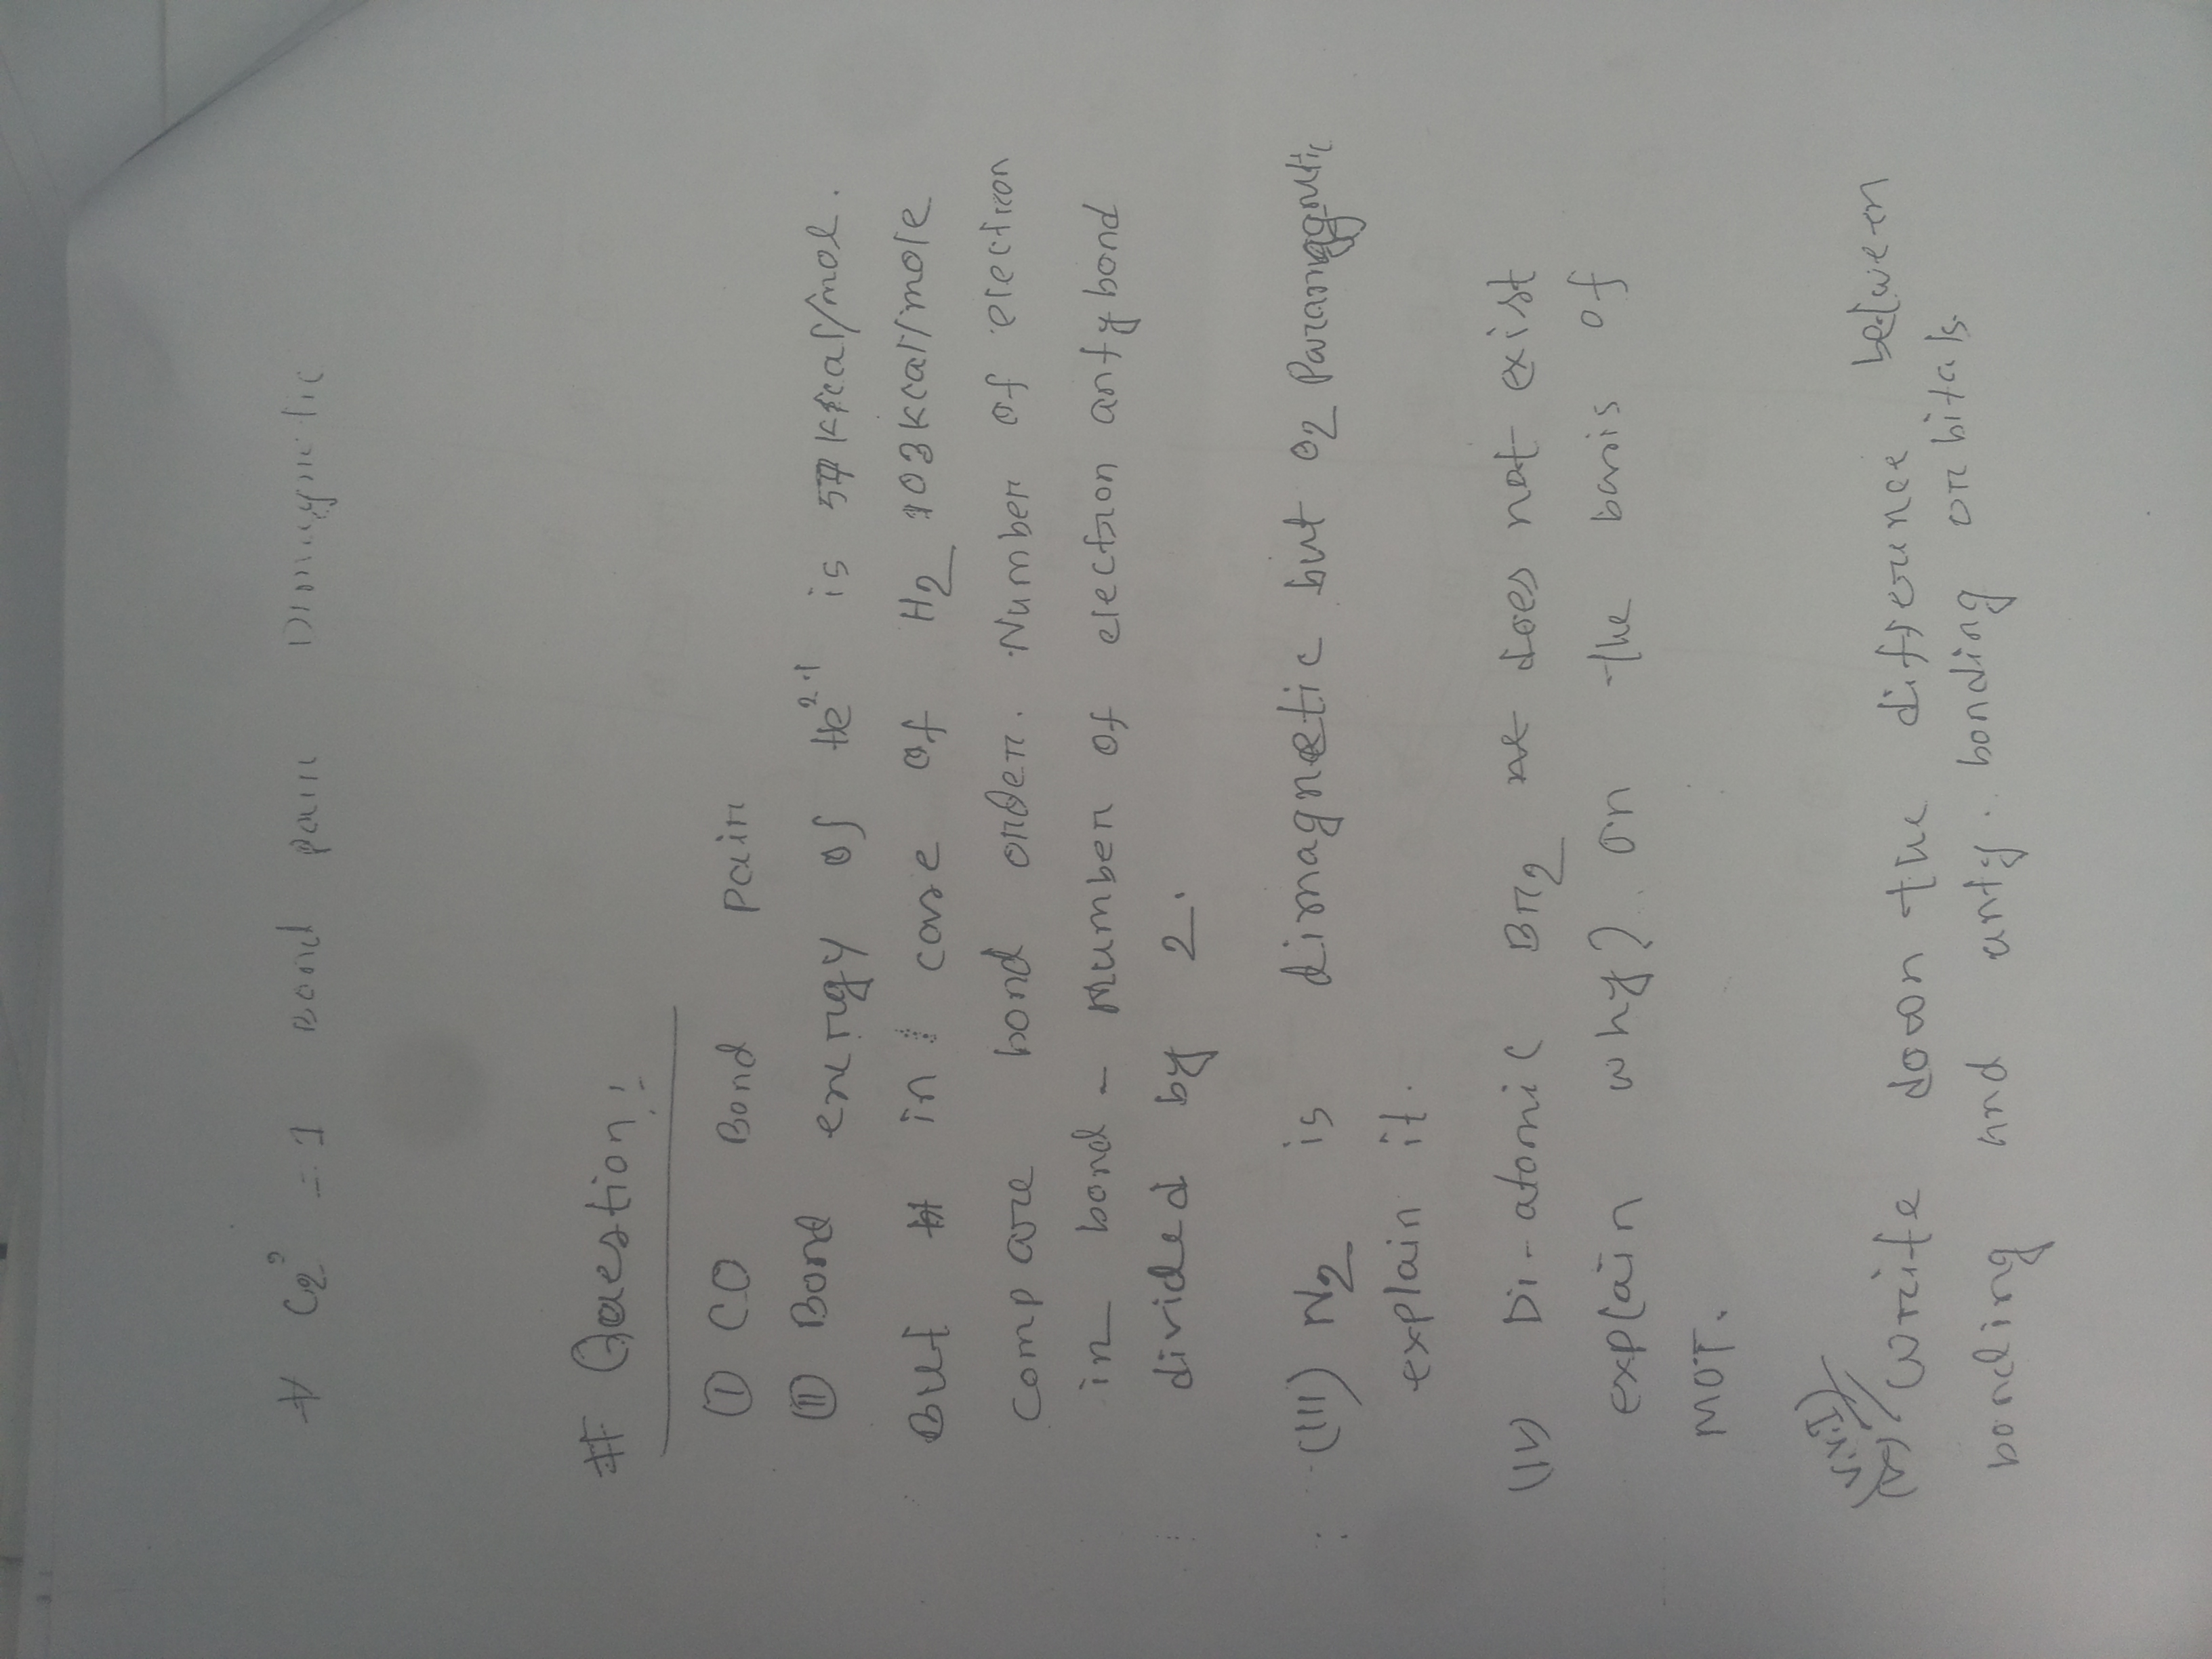 # C2 = 1 Bond pair Dimagnetic
# Question:-
(I) CO Bond Pair
(II) Bond energy of He2+1 is 57 kcal/mol.
But in case of H2 103 kcal/mole
compare bond order. Number of electron
in bond - Number of electron anty bond
divided by 2.
(III) N2 is dimagnetic but O2 Paramagnetic
explain it.
(IV) Di-atomic Br2 does not exist
explain why? on the basis of
MOT.
V.V.I
(V) Write down the difference between
bonding and anty. bonding orbitals.